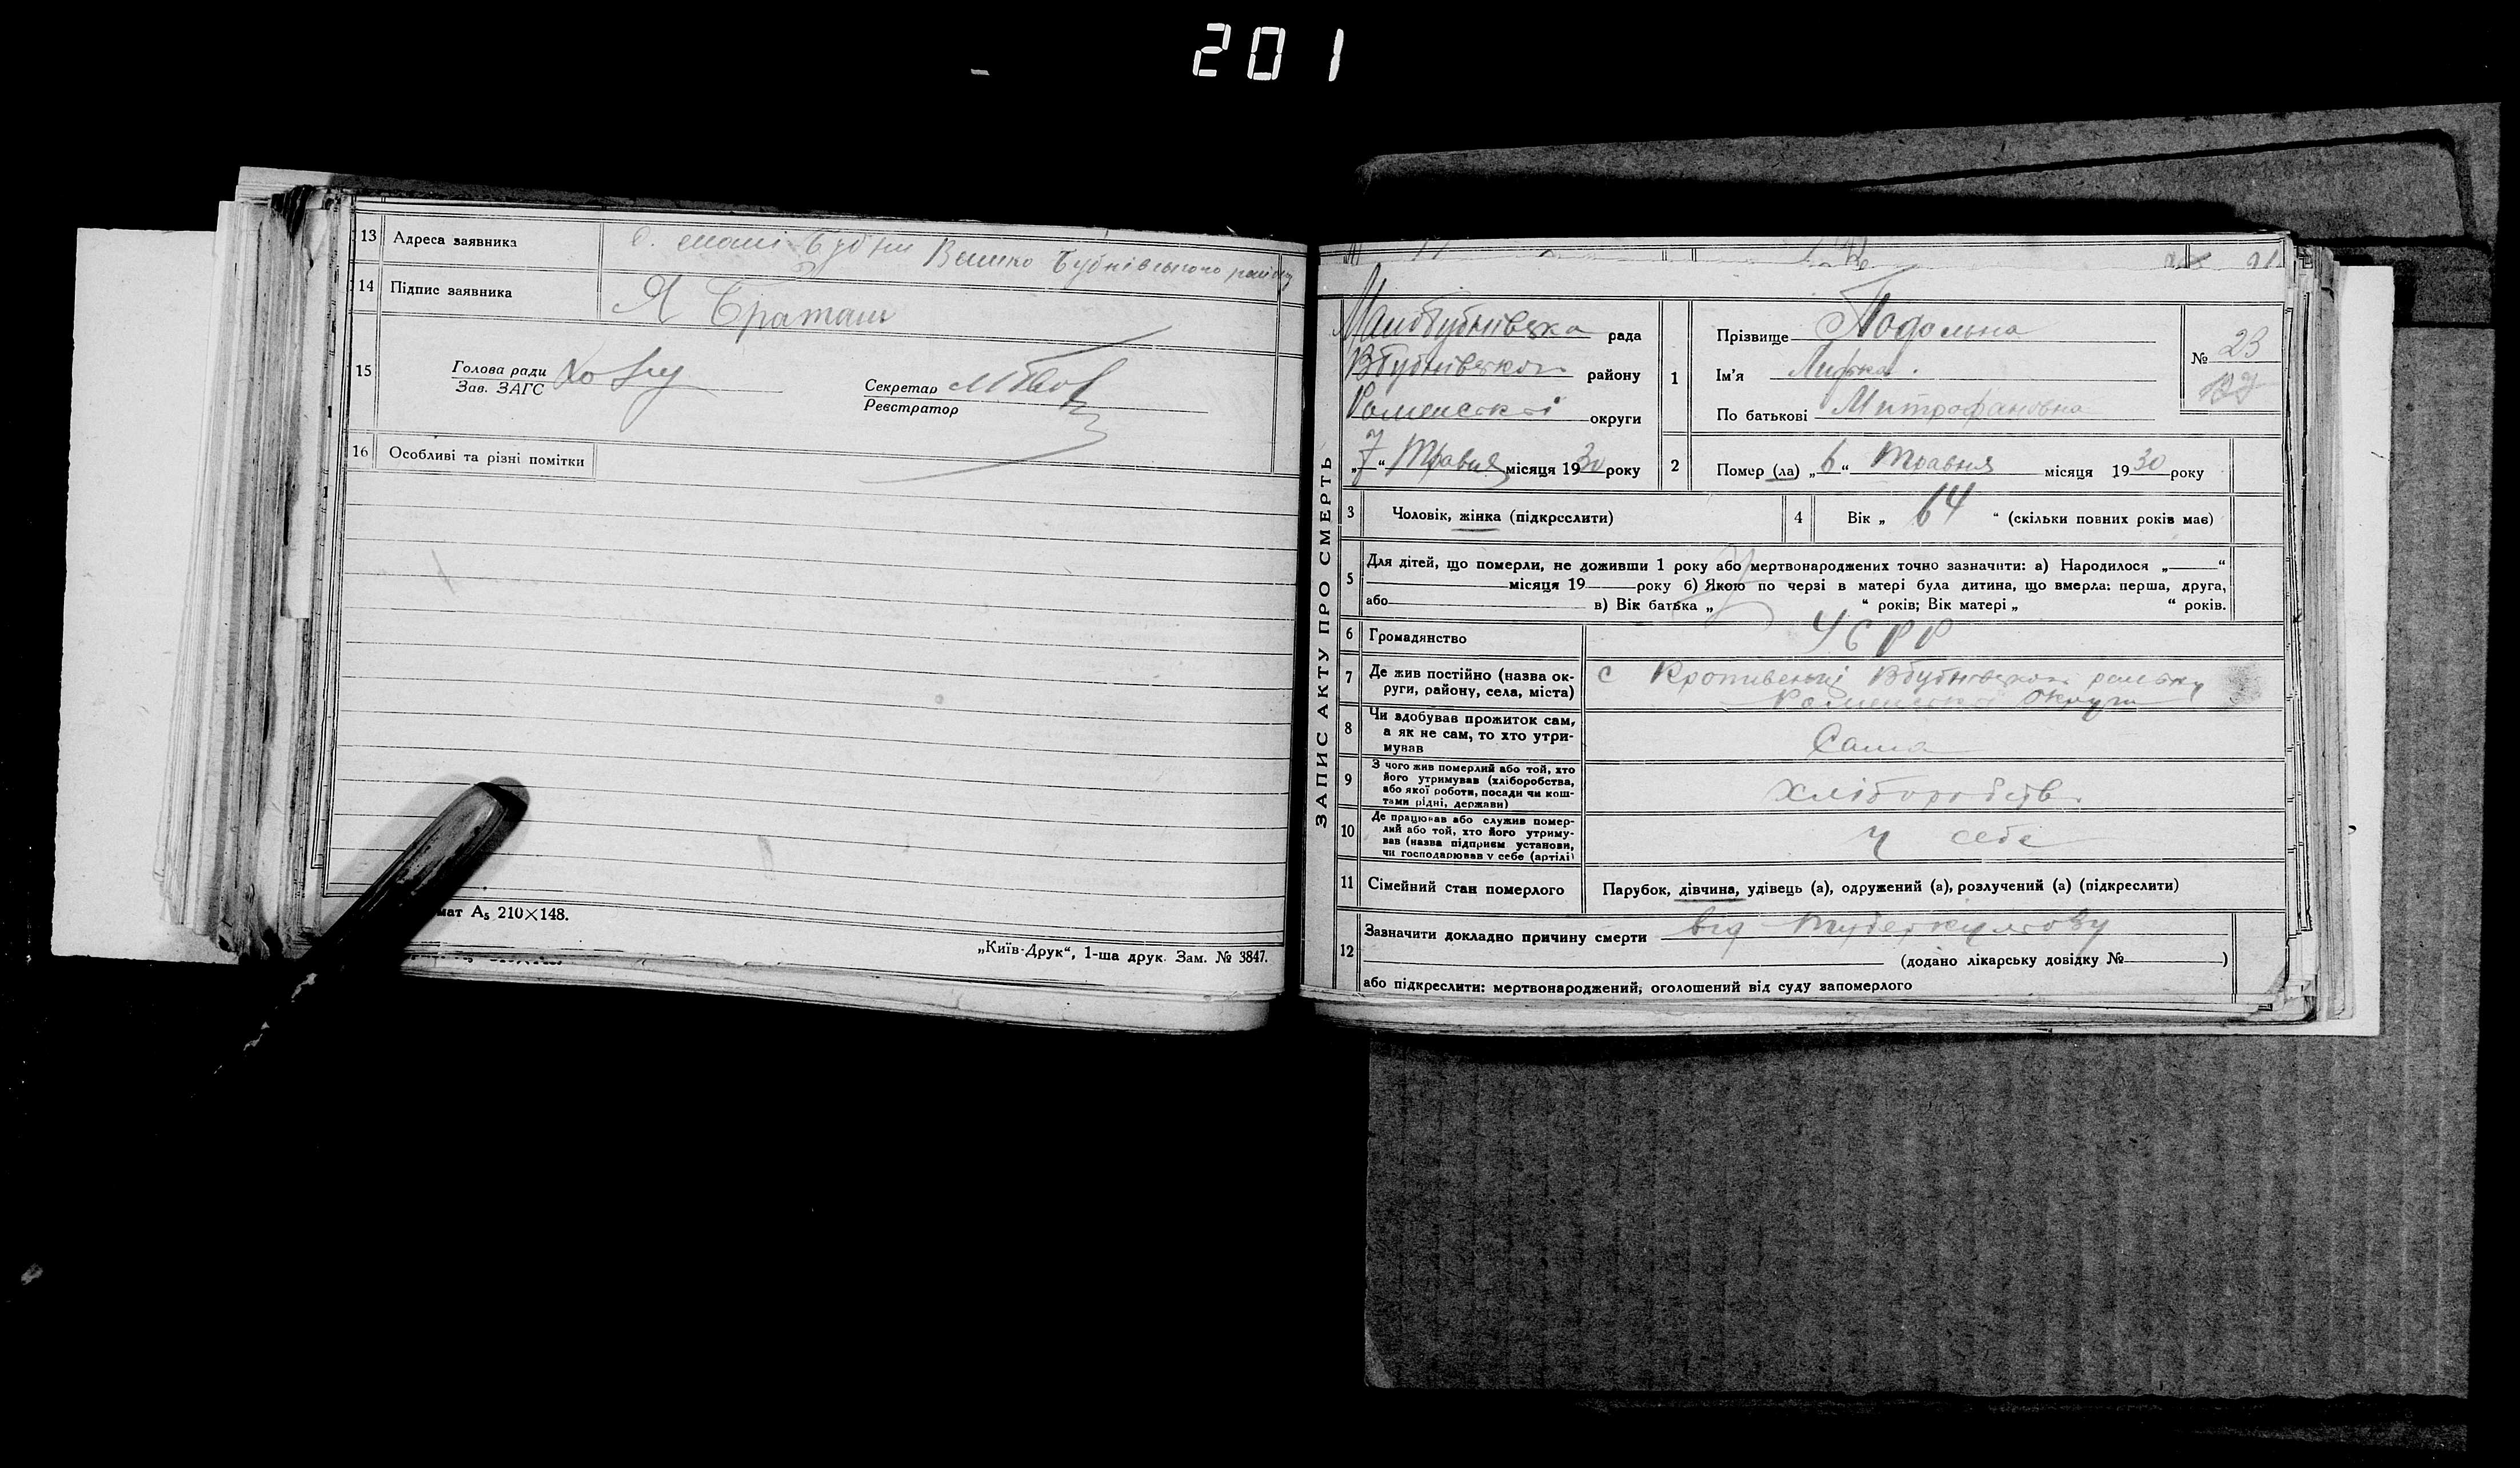 201
13 Адреса заявника с. малі Бубни Велико Бубнівського району
14 Підпис заявника Я Браташ
15 Голова ради
Зав. ЗАГС
Секретар
Реєстратор
16 Особливі та різні помітки
мат А5 210×148.
„Київ-Друк“, 1-ша друк. Зам. № 3847.
ЗАПИС АКТУ ПРО СМЕРТЬ
Малобубнівска рада
Вбубнівского району
Роменскої округи
„7“ Травня місяця 1930 року
1 Прізвище Подольна
Ім'я
По батькові Митрофановна
№ 23
2 Помер (ла) „6“ Травня місяця 1930 року
3 Чоловік, жінка (підкреслити)
4 Вік „ 64 “ (скільки повних років має)
5 Для дітей, що померли, не доживши 1 року або мертвонароджених точно зазначити: а) Народилося „ “
місяця 19 року б) Якою по черзі в матері була дитина, що вмерла: перша, друга,
або в) Вік батька „ “ років; Вік матері „ “ років.
6 Громадянство УСРР
7 Де жив постійно (назва ок-
руги, району, села, міста) с Вбубнівского району
Роменскої округи
8 Чи здобував прожиток сам,
а як не сам, то хто утри-
мував Сама
9 З чого жив померлий або той, хто
його утримував (хліборобства,
або якої роботи, посади чи кош-
тами рідні, держави) хліборобств
10 Де працював або служив помер-
лий або той, хто його утриму-
вав (назва підприєм установи,
чи господарював у себе (артілі) у себе
11 Сімейний стан померлого Парубок, дівчина, удівець (а), одружений (а), розлучений (а) (підкреслити)
12 Зазначити докладно причину смерти від туберкульозу
(додано лікарську довідку № )
або підкреслити: мертвонароджений, оголошений від суду запомерлого